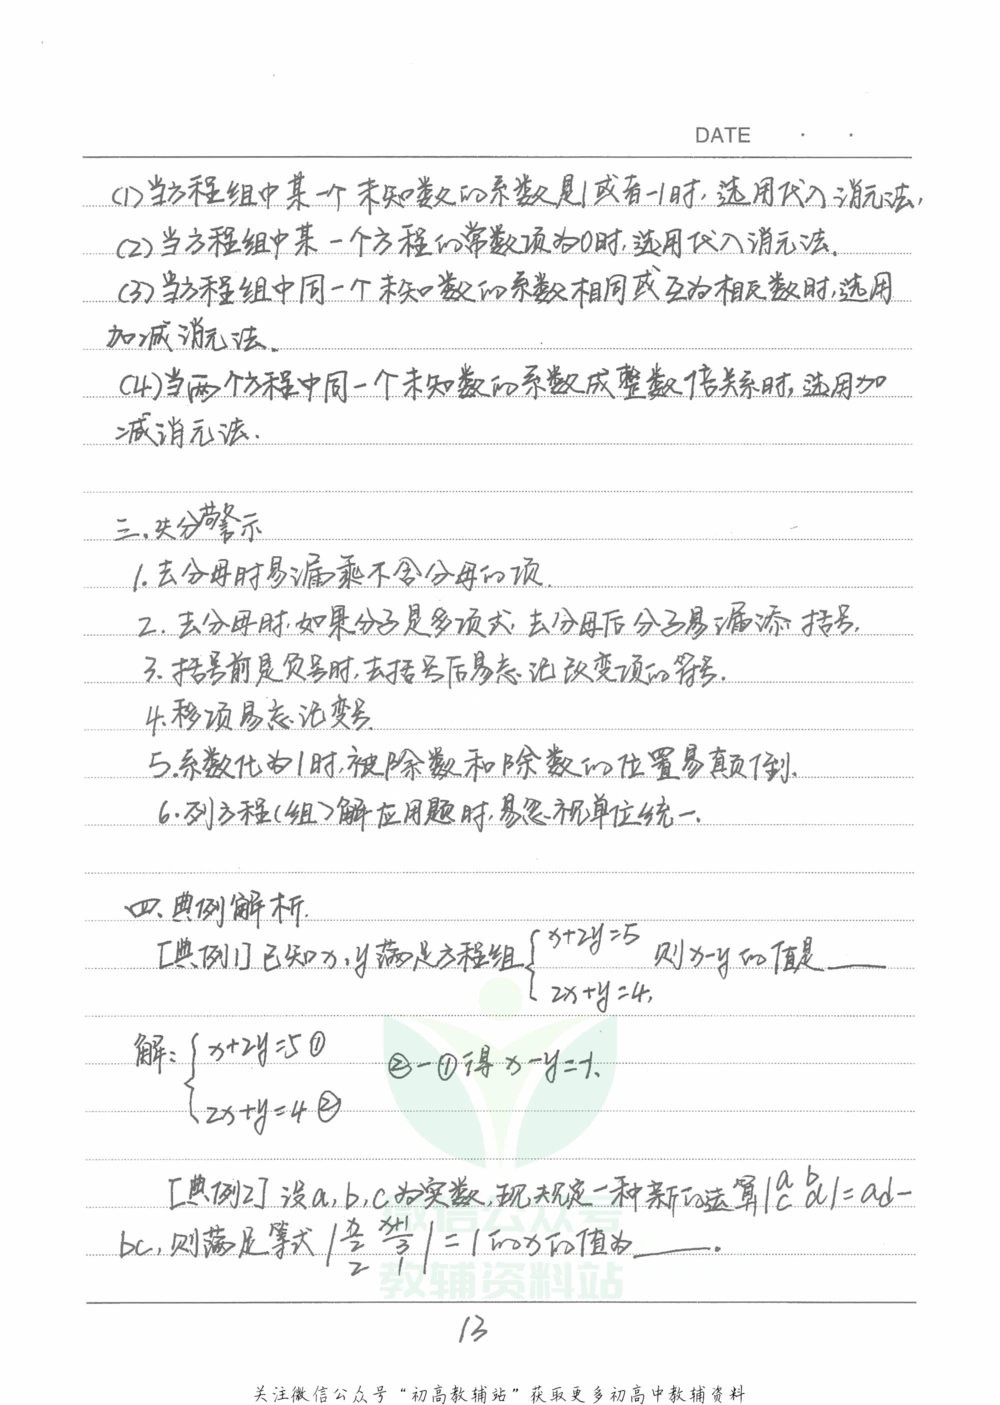 DATE · ·
(1)当方程组中某一个未知数的系数是1或者-1时,选用代入消元法,
(2)当方程组中某一个方程的常数项为0时,选用代入消元法.
(3)当方程组中同一个未知数的系数相同或互为相反数时,选用
加减消元法.
(4)当两个方程中同一个未知数的系数成整数倍关系时,选用加
减消元法.
三.失分警示
1.去分母时易漏乘不含分母的项.
2.去分母时,如果分子是多项式,去分母后分子易漏添括号.
3.括号前是负号时,去括号后易忘记改变项的符号.
4.移项易忘记变号.
5.系数化为1时,被除数和除数的位置易颠倒.
6.列方程(组)解应用题时,易忽视单位统一.
四.典例解析.
[典例1]已知x,y满足方程组{x+2y=5 2x+y=4, 则x-y的值是____
解:{x+2y=5① 2x+y=4② ②-①得x-y=-1.
[典例2]设a,b,c为实数,现规定一种新的运算|a b c d|=ad-
bc,则满足等式|x/2 x+1/3 2 1|=1的x的值为____.
微信公众号
教辅资料站
13
关注微信公众号“初高教辅站”获取更多初高中教辅资料